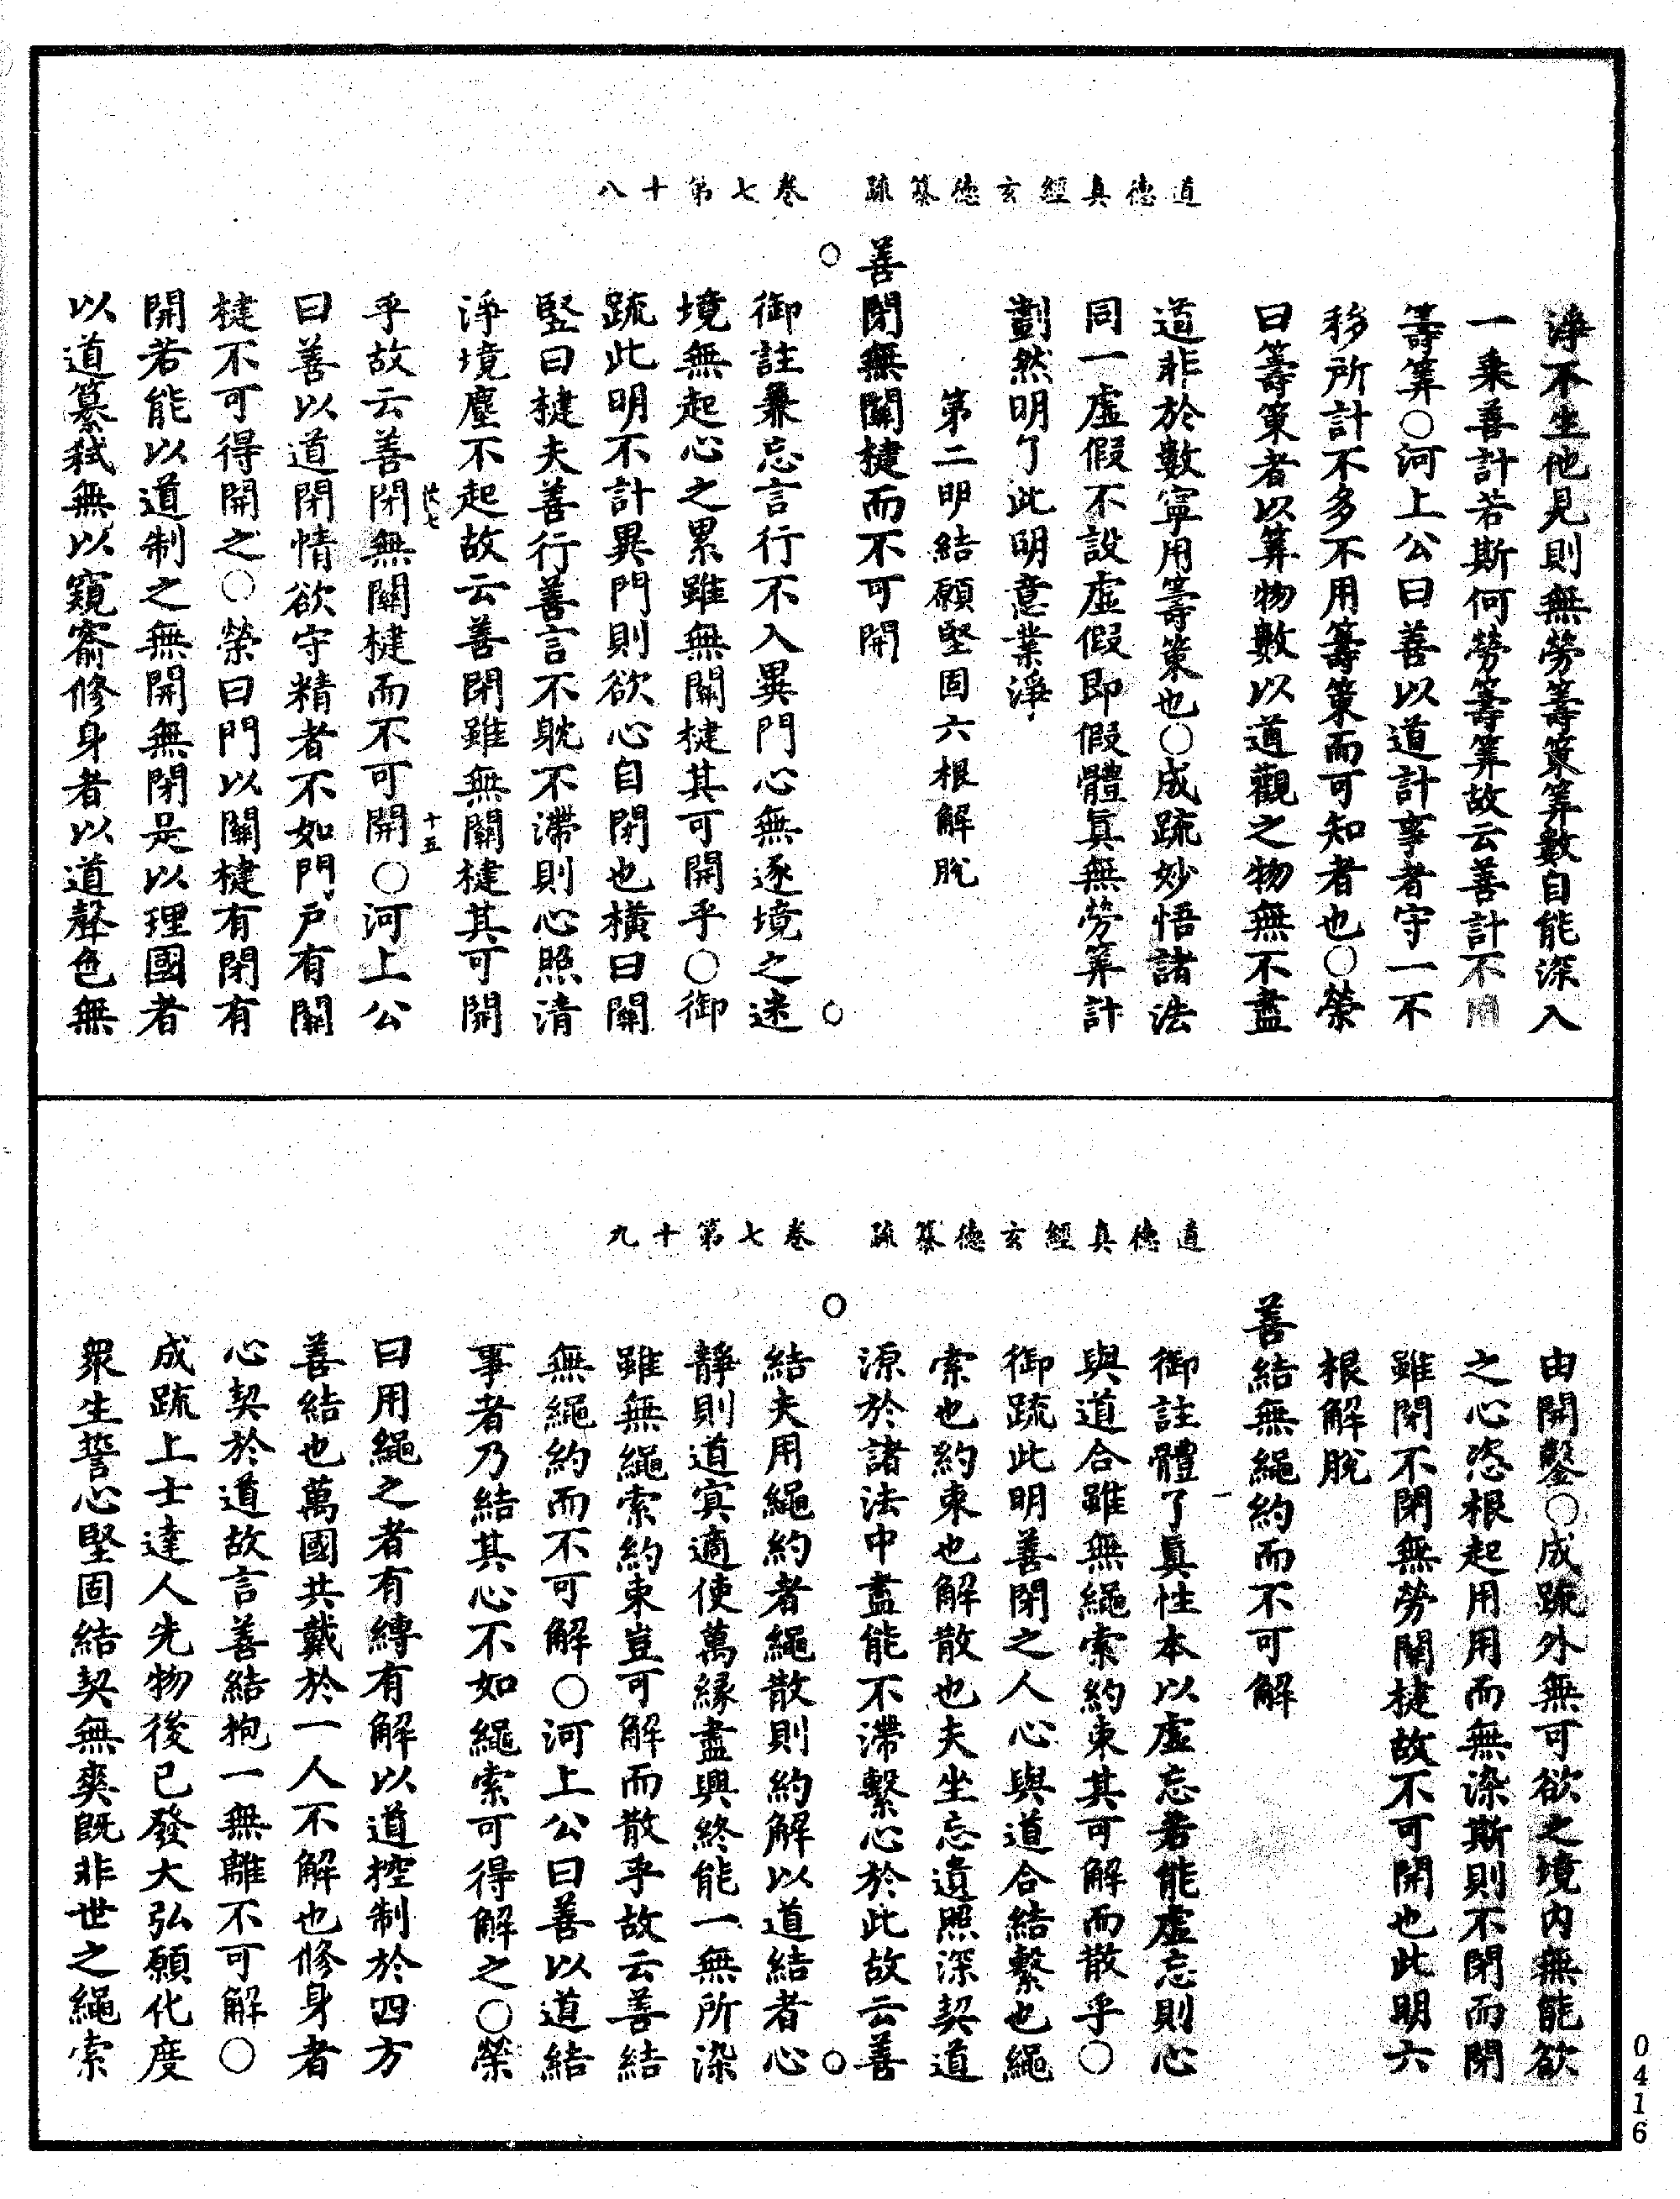 道德真經玄德纂疏　卷七第十八
淨不生他見則無勞籌策筭數自能深入
一乘善計若斯何勞籌筭故云善計不用
籌筭○河上公曰善以道計事者守一不
移所計不多不用籌策而可知者也○榮
曰籌策者以筭物數以道觀之物無不盡
道非於數寧用籌策也○成疏妙悟諸法
同一虛假不設虛假即假體眞無勞筭計
劃然明了此明意業淨
第二明結願堅固六根解脫
善閉無關楗而不可開
御註兼忘言行不入異門心無逐境之迷
境無起心之累雖無關楗其可開乎○御
疏此明不計異門則欲心自閉也橫曰關
竪曰楗夫善行善言不躭不滯則心照清
淨境塵不起故云善閉雖無關楗其可開
乎故云善閉無關楗而不可開○河上公
曰善以道閉情欲守精者不如門戶有關
楗不可得開之○榮曰門以關楗有閉有
開若能以道制之無開無閉是以理國者
以道纂弒無以窺窬修身者以道聲色無
十五
道德真經玄德纂疏　卷七第十九
由開鑿○成疏外無可欲之境內無能欲
之心恣根起用用而無染斯則不閉而閉
雖閉不閉無勞關楗故不可開也此明六
根解脫
善結無繩約而不可解
御註體了眞性本以虛忘若能虛忘則心
與道合雖無繩索約束其可解而散乎○
御疏此明善閉之人心與道合結繫也繩
索也約束也解散也夫坐忘遺照深契道
源於諸法中盡能不滯繫心於此故云善
結夫用繩約者繩散則約解以道結者心
靜則道冥適使萬緣盡興終能一無所染
雖無繩索約束豈可解而散乎故云善結
無繩約而不可解○河上公曰善以道結
事者乃結其心不如繩索可得解之○榮
曰用繩之者有縛有解以道控制於四方
善結也萬國共戴於一人不解也修身者
心契於道故言善結抱一無離不可解○
成疏上士達人先物後已發大弘願化度
衆生誓心堅固結契無爽旣非世之繩索
0416